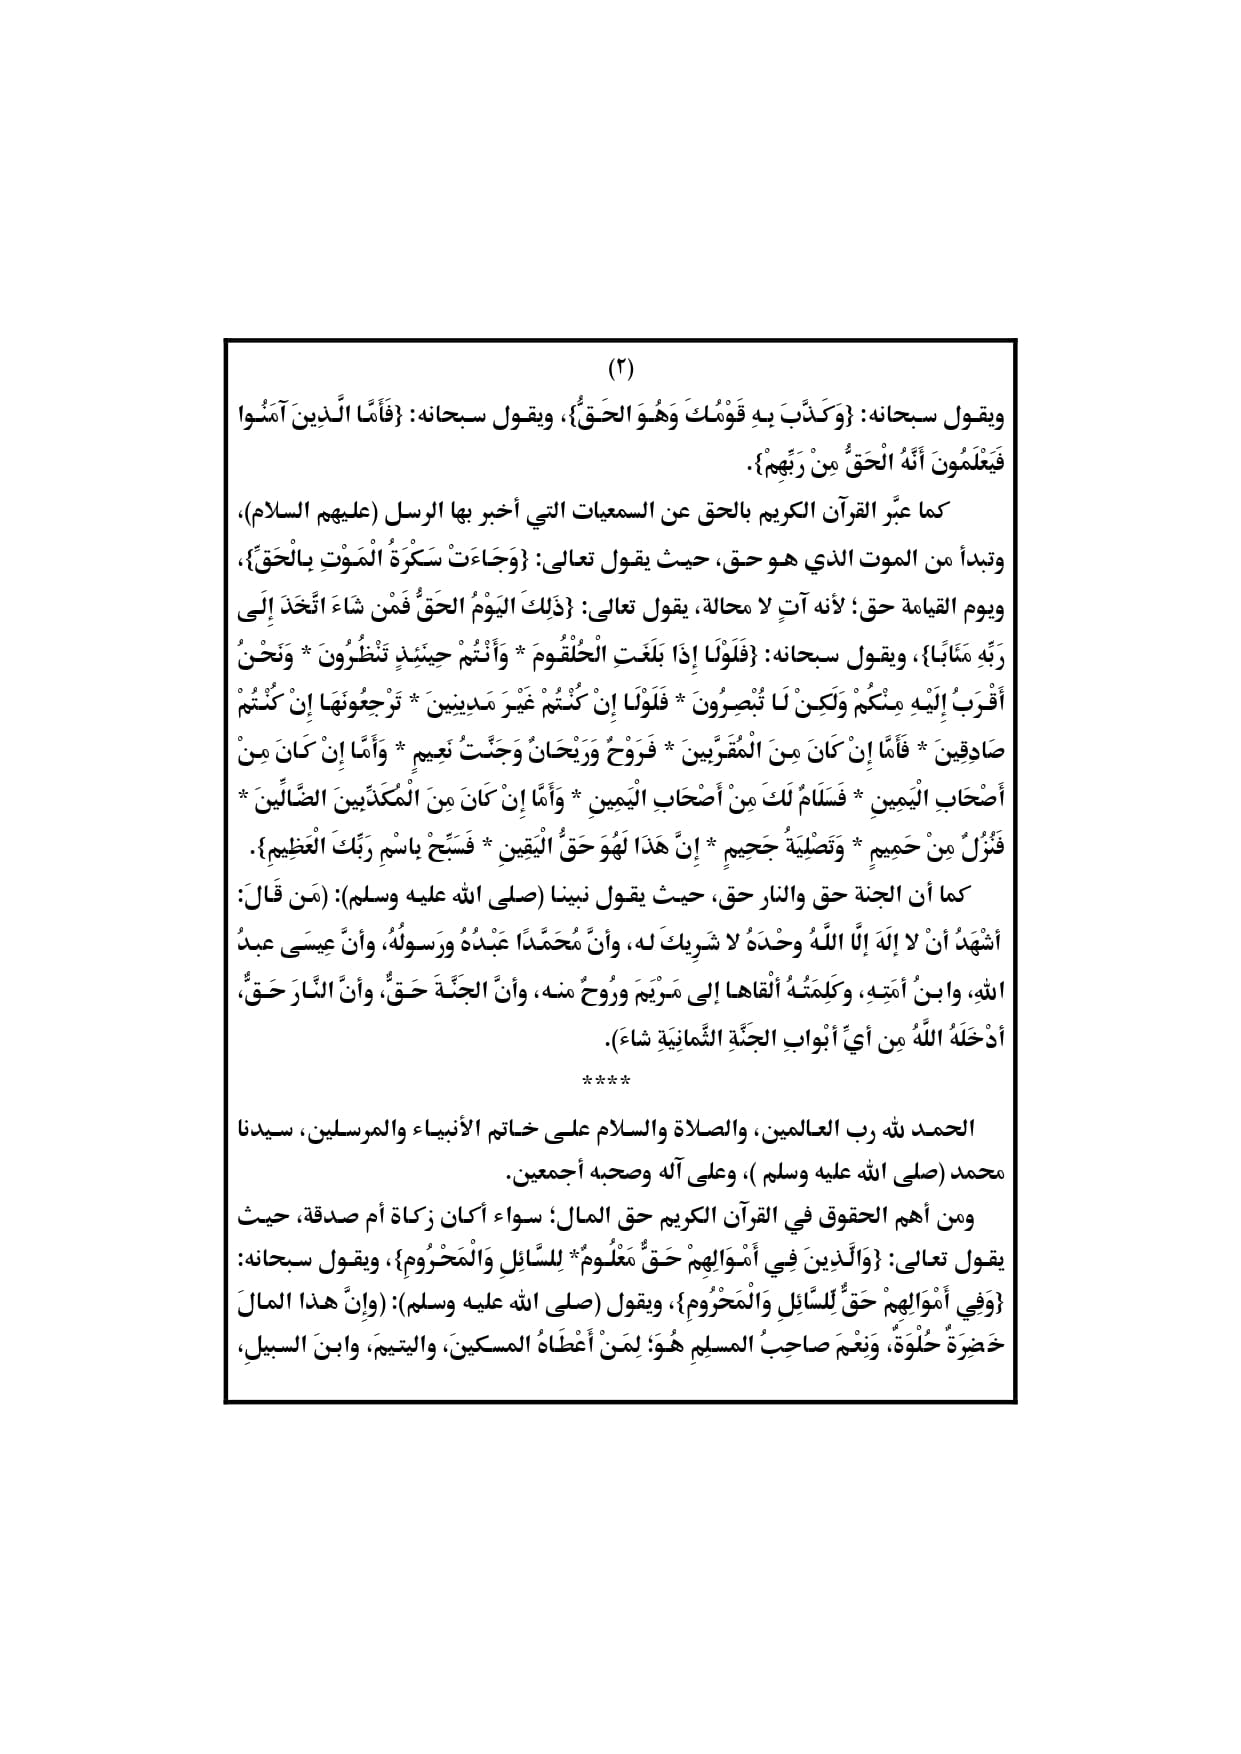 (٢)
ويقول سبحانه: {وَكَذَّبَ بِهِ قَوْمُكَ وَهُوَ الحَقُّ}، ويقول سبحانه: {فَأَمَّا الَّذِينَ آمَنُوا
فَيَعْلَمُونَ أَنَّهُ الْحَقُّ مِنْ رَبِّهِمْ}.
كما عبَّر القرآن الكريم بالحق عن السمعيات التي أخبر بها الرسل (عليهم السلام)،
وتبدأ من الموت الذي هو حق، حيث يقول تعالى: {وَجَاءَتْ سَكْرَةُ الْمَوْتِ بِالْحَقِّ}،
ويوم القيامة حق؛ لأنه آتٍ لا محالة، يقول تعالى: {ذَلِكَ اليَوْمُ الحَقُّ فَمْن شَاءَ اتَّخَذَ إِلَى
رَبِّهِ مَئَابًا}، ويقول سبحانه: {فَلَوْلَا إِذَا بَلَغَتِ الْحُلْقُومَ * وَأَنْتُمْ حِينَئِذٍ تَنْظُرُونَ * وَنَحْنُ
أَقْرَبُ إِلَيْهِ مِنْكُمْ وَلَكِنْ لَا تُبْصِرُونَ * فَلَوْلَا إِنْ كُنْتُمْ غَيْرَ مَدِينِينَ * تَرْجِعُونَهَا إِنْ كُنْتُمْ
صَادِقِينَ * فَأَمَّا إِنْ كَانَ مِنَ الْمُقَرَّبِينَ * فَرَوْحٌ وَرَيْحَانٌ وَجَنَّتُ نَعِيمٍ * وَأَمَّا إِنْ كَانَ مِنْ
أَصْحَابِ الْيَمِينِ * فَسَلَامٌ لَكَ مِنْ أَصْحَابِ الْيَمِينِ * وَأَمَّا إِنْ كَانَ مِنَ الْمُكَذِّبِينَ الضَّالِّينَ *
فَنُزُلٌ مِنْ حَمِيمٍ * وَتَصْلِيَةُ جَحِيمٍ * إِنَّ هَذَا لَهُوَ حَقُّ الْيَقِينِ * فَسَبِّحْ بِاسْمِ رَبِّكَ الْعَظِيمِ}.
كما أن الجنة حق والنار حق، حيث يقول نبينا (صلى الله عليه وسلم): (مَن قَالَ:
أشْهَدُ أنْ لا إلَهَ إلَّا اللَّهُ وحْدَهُ لا شَرِيكَ له، وأنَّ مُحَمَّدًا عَبْدُهُ ورَسولُهُ، وأنَّ عِيسَى عبدُ
اللهِ، وابنُ أمَتِهِ، وكَلِمَتُهُ ألْقاها إلى مَرْيَمَ ورُوحٌ منه، وأنَّ الجَنَّةَ حَقٌّ، وأنَّ النَّارَ حَقٌّ،
أدْخَلَهُ اللَّهُ مِن أيِّ أبْوابِ الجَنَّةِ الثَّمانِيَةِ شاءَ).
****
الحمد لله رب العالمين، والصلاة والسلام على خاتم الأنبياء والمرسلين، سيدنا
محمد (صلى الله عليه وسلم )، وعلى آله وصحبه أجمعين.
ومن أهم الحقوق في القرآن الكريم حق المال؛ سواء أكان زكاة أم صدقة، حيث
يقول تعالى: {وَالَّذِينَ فِي أَمْوَالِهِمْ حَقٌّ مَعْلُومٌ* لِلسَّائِلِ وَالْمَحْرُومِ}، ويقول سبحانه:
{وَفِي أَمْوَالِهِمْ حَقٌّ لِّلسَّائِلِ وَالْمَحْرُومِ}، ويقول (صلى الله عليه وسلم): (وإِنَّ هذا المالَ
خَضِرَةٌ حُلْوَةٌ، وَنِعْمَ صاحِبُ المسلِمِ هُوَ؛ لِمَنْ أَعْطَاهُ المسكينَ، واليتيمَ، وابنَ السبيلِ،